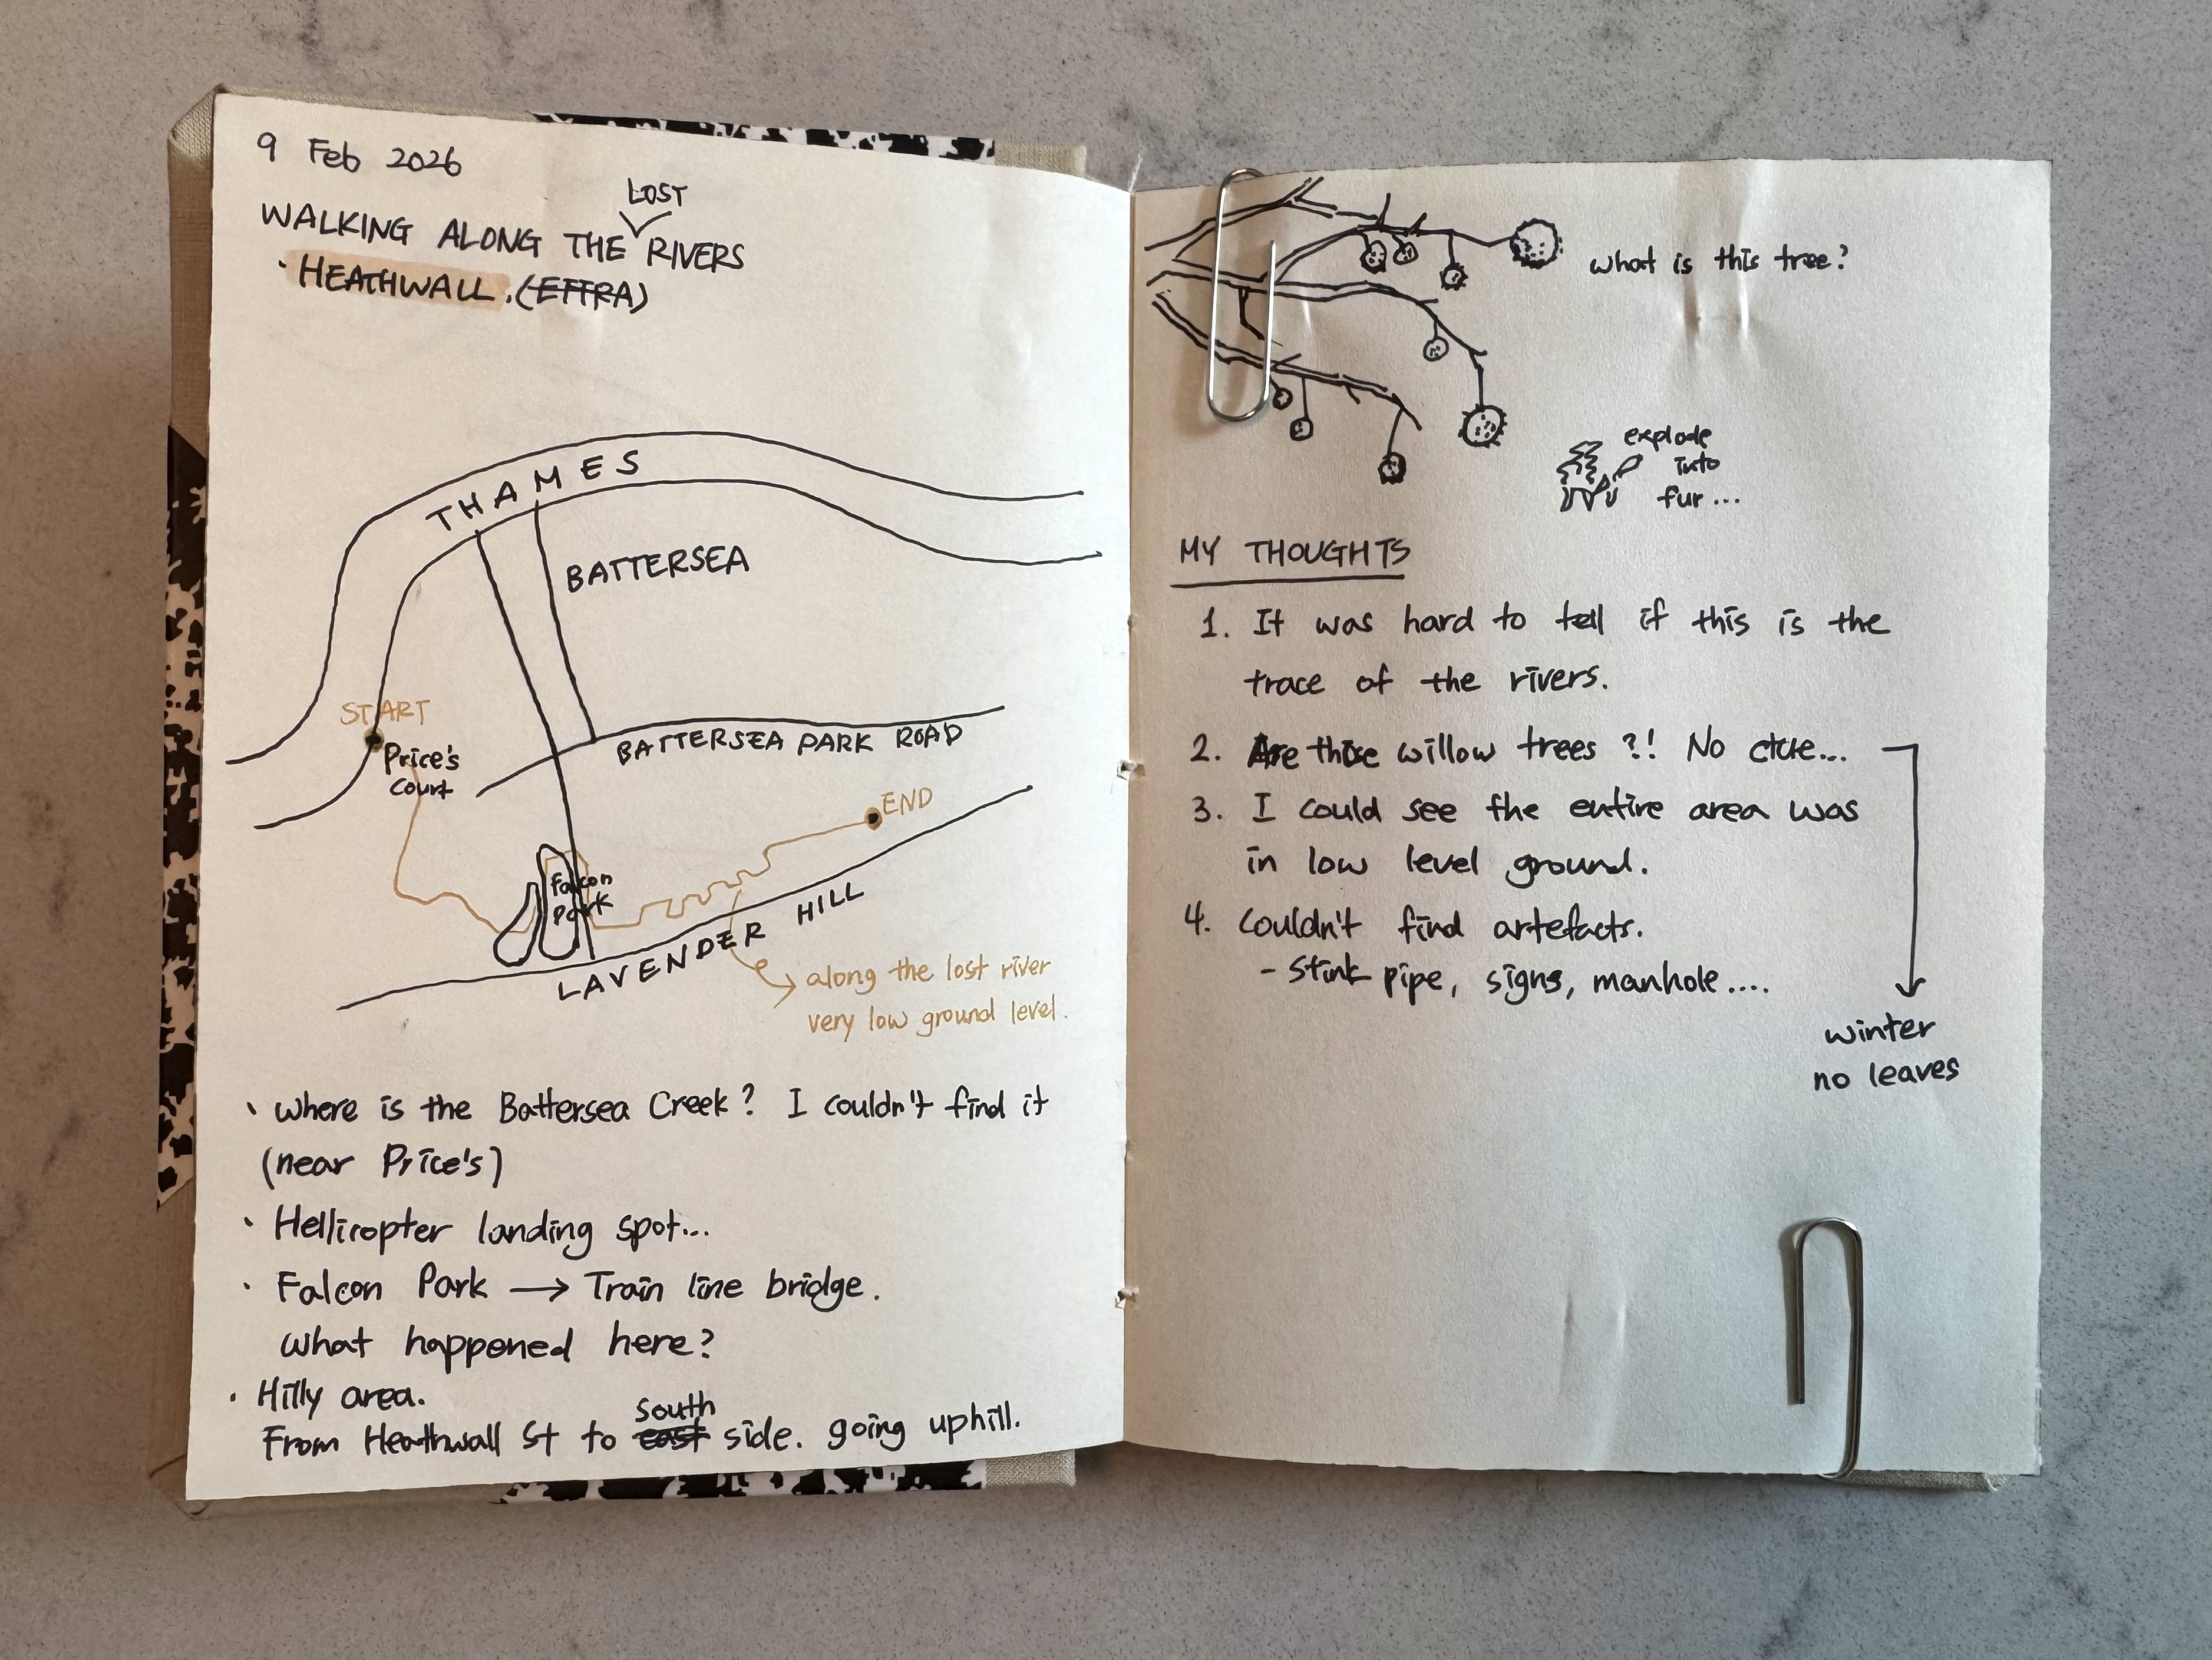 9 Feb 2026
LOST
WALKING ALONG THE RIVERS
· HEATHWALL. (EFFRA)
THAMES
BATTERSEA
START
Price's
Court
BATTERSEA PARK ROAD
END
Falcon
Park
LAVENDER HILL
along the lost river
very low ground level.
· Where is the Battersea Creek? I couldn't find it
(near Price's)
· Hellicopter landing spot...
· Falcon Park → Train line bridge.
What happened here?
· Hilly area.
south
From Heathwall St to east side. going uphill.
What is this tree?
explode
into
fur...
MY THOUGHTS
1. It was hard to tell if this is the
trace of the rivers.
2. Are those willow trees ?! No clue...
3. I could see the entire area was
in low level ground.
4. Couldn't find artefacts.
- Stink pipe, signs, manhole....
winter
no leaves